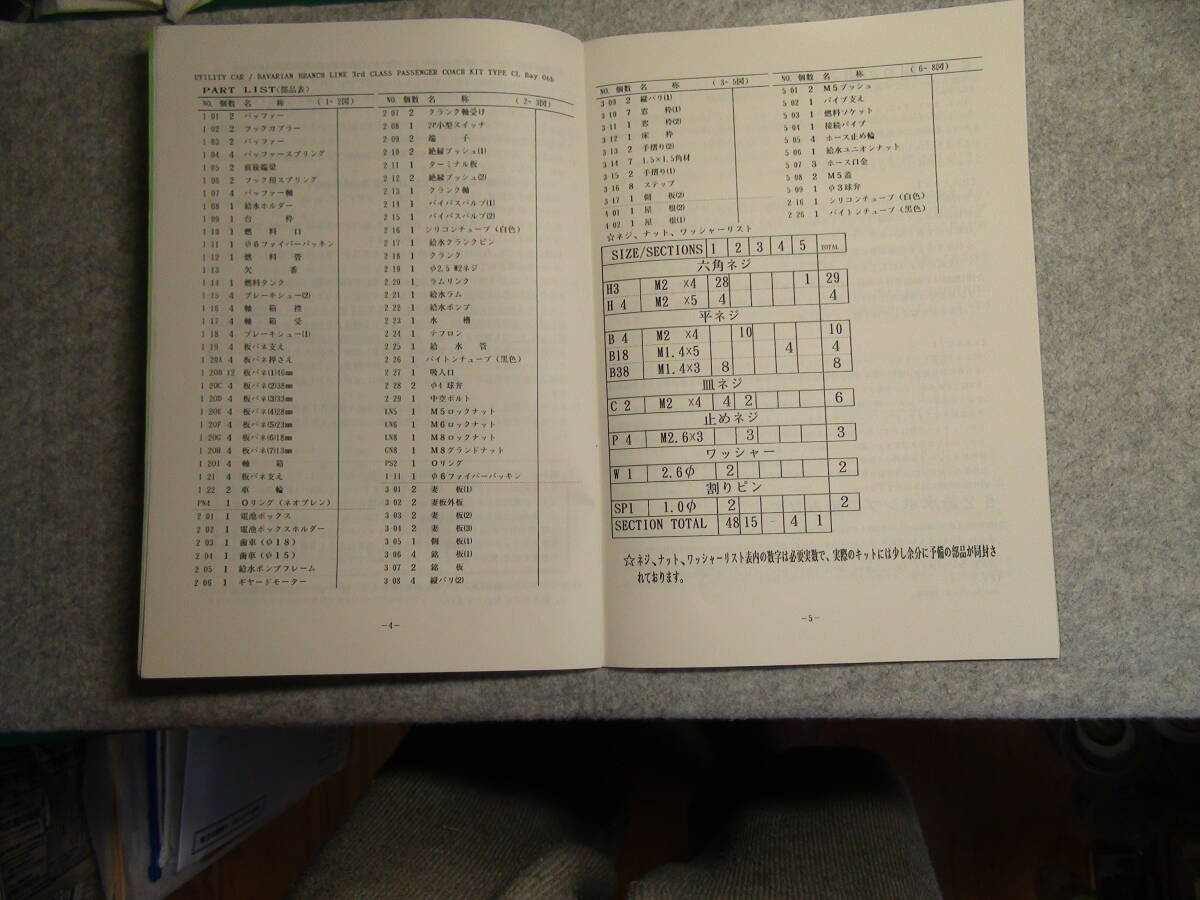 UTILITY CAR / BAVARIAN BRANCH LINE 3rd CLASS PASSENGER COACH KIT TYPE CL Bay 06b
PART LIST(部品表)
NO. 個数 名 称 (1~2図)
1 01 2 バッファー
1 02 2 フックカプラー
1 03 2 バッファー
1 04 4 バッファースプリング
1 05 2 前後端梁
1 06 2 フック用スプリング
1 07 4 バッファー軸
1 08 1 給水ホルダー
1 09 1 台 枠
1 10 1 燃 料 口
1 11 1 φ6ファイバーパッキン
1 12 1 燃 料 管
1 13 欠 番
1 14 1 燃料タンク
1 15 4 ブレーキシュー(2)
1 16 4 軸 箱 控
1 17 4 軸 箱 受
1 18 4 ブレーキシュー(1)
1 19 4 板バネ支え
1 20A 4 板バネ押さえ
1 20B 12 板バネ(1)46mm
1 20C 4 板バネ(2)38mm
1 20D 4 板バネ(3)33mm
1 20E 4 板バネ(4)28mm
1 20F 4 板バネ(5)23mm
1 20G 4 板バネ(6)18mm
1 20H 4 板バネ(7)13mm
1 20I 4 軸 箱
1 21 4 板バネ支え
1 22 2 車 輪
PN4 1 Oリング(ネオプレン)
2 01 1 電池ボックス
2 02 1 電池ボックスホルダー
2 03 1 歯車(φ18)
2 04 1 歯車(φ15)
2 05 1 給水ポンプフレーム
2 06 1 ギヤードモーター
NO. 個数 名 称 (2~3図)
2 07 2 クランク軸受け
2 08 1 2P小型スイッチ
2 09 2 端 子
2 10 2 絶縁ブッシュ(1)
2 11 1 ターミナル板
2 12 2 絶縁ブッシュ(2)
2 13 1 クランク軸
2 14 1 バイパスバルブ(1)
2 15 1 バイパスバルブ(2)
2 16 1 シリコンチューブ(白色)
2 17 1 給水クランクピン
2 18 1 クランク
2 19 1 φ2.5 M2ネジ
2 20 1 ラムリンク
2 21 1 給水ラム
2 22 1 給水ポンプ
2 23 1 水 槽
2 24 1 テフロン
2 25 1 給 水 管
2 26 1 バイトンチューブ(黒色)
2 27 1 吸入口
2 28 2 φ4球弁
2 29 1 中空ボルト
LN5 1 M5ロックナット
LN6 1 M6ロックナット
LN8 1 M8ロックナット
GN8 1 M8グランドナット
PS2 1 Oリング
1 11 1 φ6ファイバーパッキン
3 01 2 妻 板(1)
3 02 2 妻板外板
3 03 2 妻 板(2)
3 04 2 妻 板(3)
3 05 1 側 板(1)
3 06 4 銘 板(1)
3 07 2 銘 板
3 08 4 縦バリ(2)
-4-
NO. 個数 名 称 (3~5図)
3 09 2 縦バリ(1)
3 10 7 窓 枠(1)
3 11 1 窓 枠(2)
3 12 1 床 枠
3 13 2 手摺り(2)
3 14 7 1.5×1.5角材
3 15 2 手摺り(1)
3 16 8 ステップ
3 17 1 側 板(2)
4 01 1 屋 根(2)
4 02 1 屋 根(1)
NO. 個数 名 称 (6~8図)
5 01 2 M5ブッシュ
5 02 1 パイプ支え
5 03 1 燃料ソケット
5 04 1 接続パイプ
5 05 4 ホース止め輪
5 06 1 給水ユニオンナット
5 07 3 ホース口金
5 08 2 M5蓋
5 09 1 φ3球弁
2 16 1 シリコンチューブ(白色)
2 26 1 バイトンチューブ(黒色)
☆ネジ、ナット、ワッシャーリスト
SIZE/SECTIONS 1 2 3 4 5 TOTAL
六角ネジ
H3 M2 ×4 28 1 29
H 4 M2 ×5 4 4
平ネジ
B 4 M2 ×4 10 10
B18 M1.4×5 4 4
B38 M1.4×3 8 8
皿ネジ
C 2 M2 ×4 4 2 6
止めネジ
P 4 M2.6×3 3 3
ワッシャー
W 1 2.6φ 2 2
割りピン
SP1 1.0φ 2 2
SECTION TOTAL 48 15 - 4 1
☆ネジ、ナット、ワッシャーリスト表内の数字は必要実数で、実際のキットには少し余分に予備の部品が同封さ
れております。
-5-